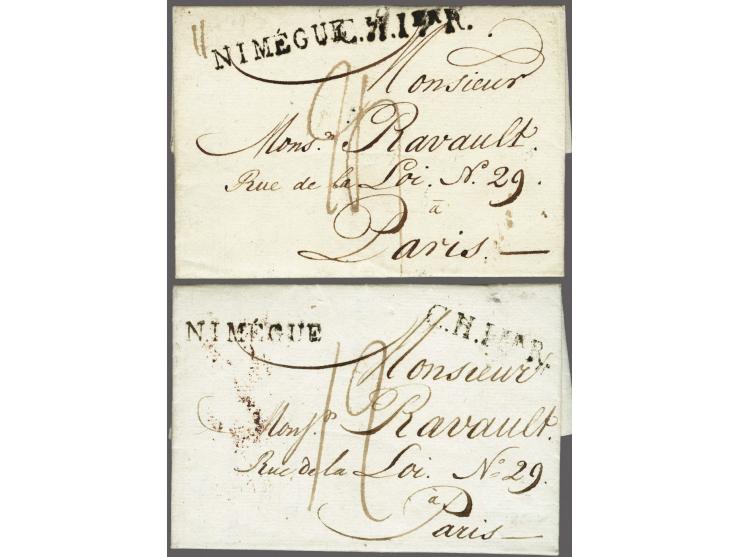 NIMÉGUE C.H.1ER R.
Monsieur
Mons.r Ravault.
Rue de la Loi. No. 29.
à
Paris.
NIMÉGUE C.H.1ER R.
Monsieur
Mons.r Ravault.
Rue de la Loi. No. 29.
à
Paris